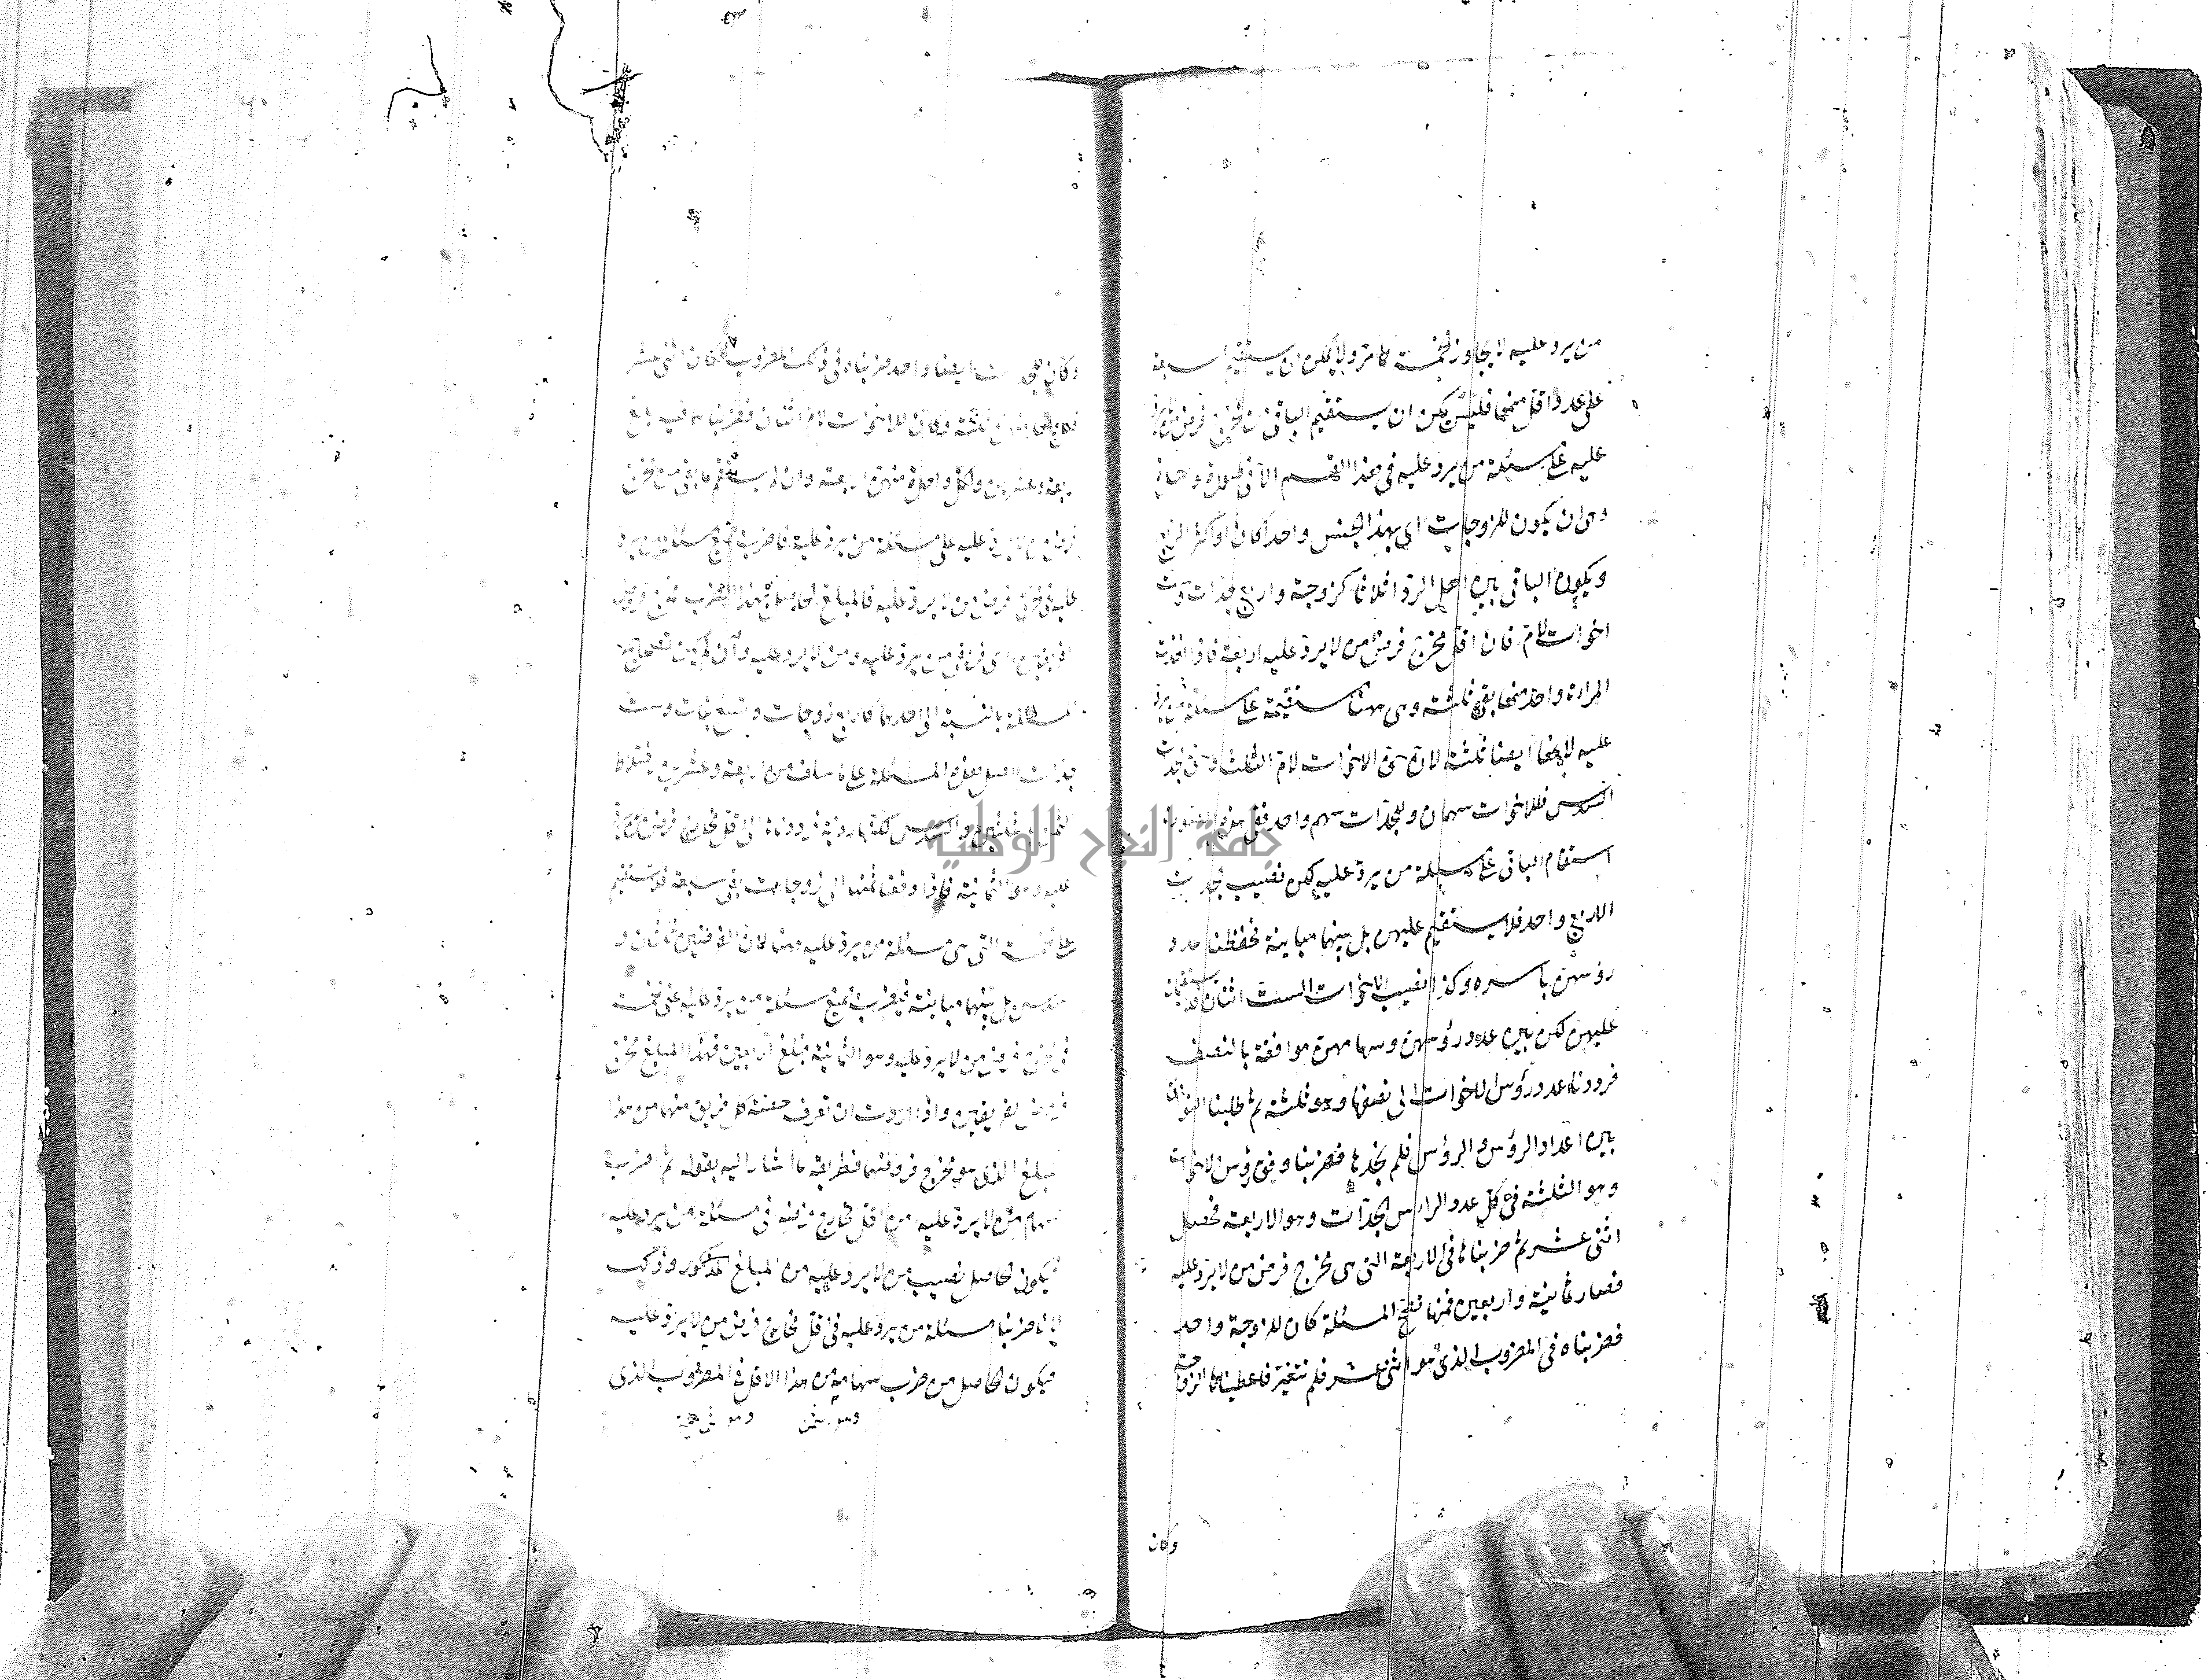 من يرد عليه لا يجاوز الخمسة كما مر ولا يمكن ان يستقيم سبعة
على عدد اقل منها فليس يمكن ان يستقيم الباقي من مخرج فرض من لا يرد
عليه على مسئلة من يرد عليه في هذا القسم الا في صورة واحدة
وهي ان يكون للزوجات اي بهذا الجنس واحدا كان او اكثر الربع
ويكون الباقي بين اهل الرد اثلاثا كزوجة واربع جدات وست
اخوات لام فان اقل مخرج فرض من لا يرد عليه اربعة فاذا اخذت
المراة واحدا منها بقي ثلثة وهي ههنا مستقيمة على مسئلة من يرد
عليه لانها ايضا ثلثة لان حق الاخوات لام الثلث وحق الجدات
السدس فللاخوات سهمان وللجدات سهم واحد ففي هذه الصورة
استقام الباقي على مسئلة من يرد عليه لكن نصيب الجدات
الاربع واحد فلا يستقيم عليهن بل بينهما مباينة فحفظنا عدد
رؤسهن باسره وكذا نصيب الاخوات الست اثنان فلا يستقيمان
عليهن لكن بين عدد رؤسهن وسهامهن موافقة بالنصف
فرددنا عدد رؤس الاخوات الى نصفها وهو ثلثة ثم طلبنا التوافق
بين اعداد الرؤس والرؤس فلم نجدها فضربنا وفق رؤس الاخوات
وهو الثلثة في كل عدد الرؤس الجدات وهو الاربعة فحصل
اثنى عشر ثم ضربناها في الاربعة التي هي مخرج فرض من لا يرد عليه
فصار ثمانية واربعين فمنها تصح المسئلة كان للزوجة واحد
فضربناه في المضروب الذي هو اثنى عشر فلم تتغير فاعطيناها الزوجة
وكان
وكان للجدات ايضا واحد فضربناه في ذلك المضروب فكان اثنى عشر
فلكل واحدة منهن ثلثة وكان للاخوات لام اثنان فضربناهما فيه بلغ
اربعة وعشرين ولكل واحدة منهن اربعة وان لم يستقم ما بقي من مخرج
فرض من لا يرد عليه على مسئلة من يرد عليه فاضرب جميع مسئلة من يرد
عليه في مخرج فرض من لا يرد عليه فالمبلغ الحاصل بهذا الضرب مخرج فروض
الفريقين اي فريقي من يرد عليه ومن لا يرد عليه وان لم يكن
المسئلة بالنسبة الى احدهما كاربع زوجات وتسع بنات وست
جدات اصل هذه المسئلة على ما سلف من اربعة وعشرين
الثمن والثلثين والسدس لكنها ردية فرددناها الى اقل مخارج فرض من لا يرد
عليه وهو الثمانية فاذا دفعنا ثمنها الى الزوجات بقي سبعة فلا يستقيم
على الخمسة التي هي مسئلة من يرد عليه ههنا لان الفرضين ثلثان و
سدس بل بينهما مباينة فيضرب جميع مسئلة من يرد عليه اعني الخمسة
في مخرج فرض من لا يرد عليه وهو الثمانية فبلغ اربعين فهذا المبلغ مخرج
فروض الفريقين واذا اردت ان تعرف حصة كل فريق منهما من هذا
المبلغ الذي هو مخرج فروضهما فطريقه ما اشار اليه بقوله ثم اضرب
سهام من لا يرد عليه من اقل مخارج فرضه في مسئلة من يرد عليه
فيكون الحاصل نصيب من لا يرد عليه من المبلغ المذكور وذلك
لانا ضربنا مسئلة من يرد عليه في اقل مخارج فرض من لا يرد عليه
فيكون الحاصل من ضرب سهامه من هذا الاقل في المضروب الذي
جامعة النجاح الوطنية